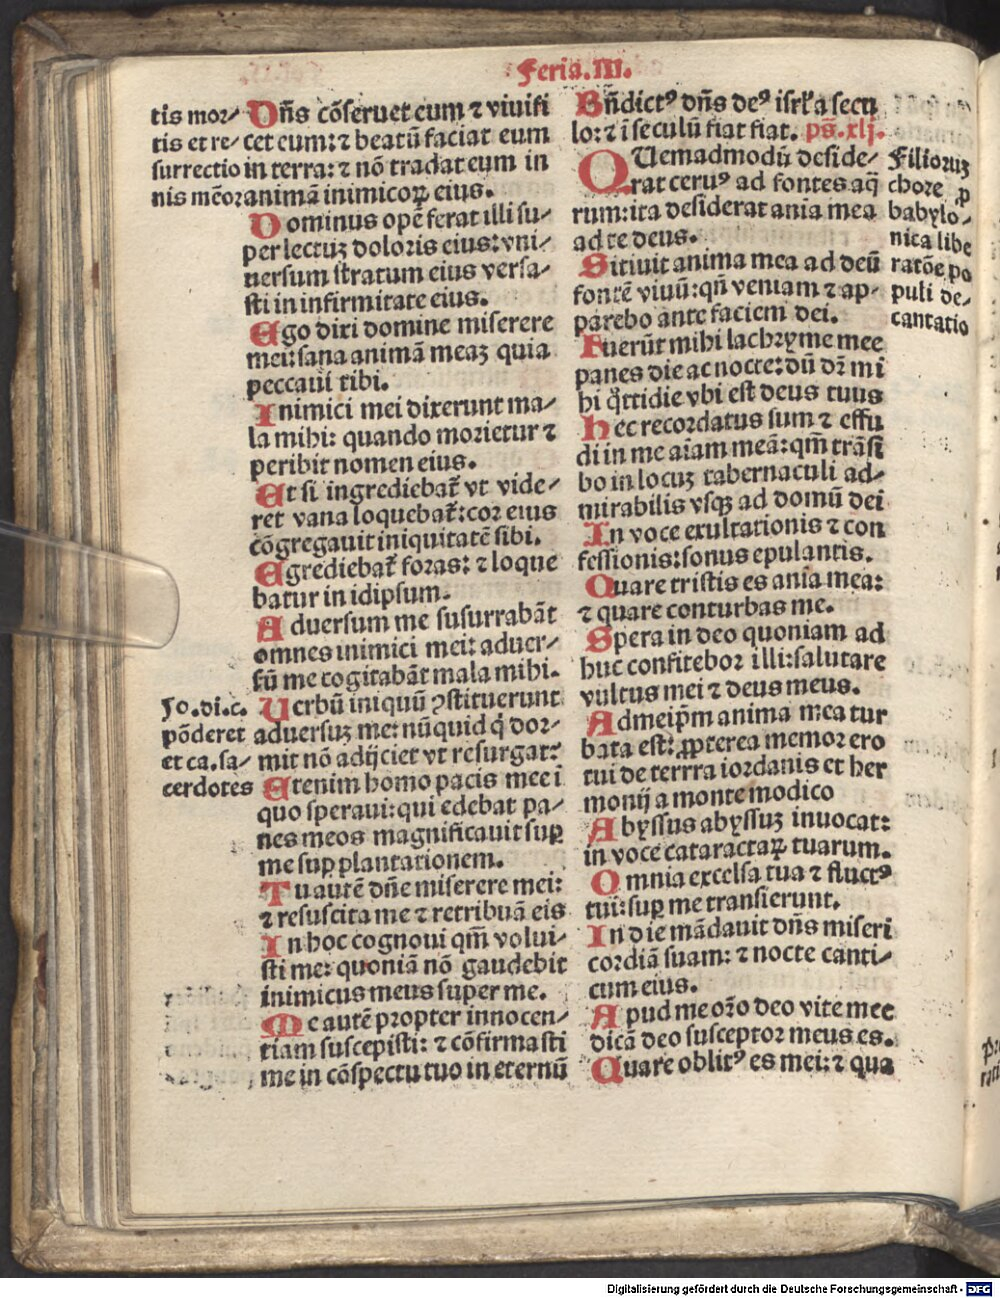 Feria.III.
tis mor⸗
tis et re⸗
surrectio
nis mẽor
Dñs cõseruet eum ⁊ viuifi
cet eum: ⁊ beatũ faciat eum
in terra: ⁊ nõ tradat eum in
animã inimicoꝝ eius.
Dominus opẽ ferat illi su⸗
per lectuꝫ doloris eius: vni⸗
uersum stratum eius versa⸗
sti in infirmitate eius.
Ego dixi domine miserere
mei: sana animã meaꝫ quia
peccaui tibi.
Inimici mei dixerunt ma⸗
la mihi: quando morietur ⁊
peribit nomen eius.
Et si ingrediebat̃ vt vide⸗
ret vana loquebat̃: cor eius
cõgregauit iniquitatẽ sibi.
Egrediebat̃ foras: ⁊ loque
batur in idipsum.
Aduersum me susurrabãt
omnes inimici mei: aduer⸗
sũ me cogitabãt mala mihi.
Jo.di.c.
põderet
et ca.sa⸗
cerdotes
Uerbũ iniquũ ꝯstituerunt
aduersuꝫ me: nũquid q̇ dor⸗
mit nõ adijciet vt resurgat:
Etenim homo pacis mee i
quo speraui: qui edebat pa⸗
nes meos magnificauit suꝑ
me suꝑplantationem.
Tu autẽ dñe miserere mei:
⁊ resuscita me ⁊ retribuã eis
In hoc cognoui qm̃ volui⸗
sti me: quoniã nõ gaudebit
inimicus meus super me.
Me autẽ propter innocen⸗
tiam suscepisti: ⁊ cõfirmasti
me in cõspectu tuo in eternũ
Bñdictꝰ dñs deꝰ isrl̃ a secu
lo: ⁊ ĩ seculũ fiat fiat. ps̃.xlj.
QUemadmodũ deside⸗
rat ceruꝰ ad fontes aq̃
rum: ita desiderat aĩa mea
ad te deus.
Sitiuit anima mea ad deũ
fontẽ viuũ: qñ veniam ⁊ ap⸗
parebo ante faciem dei.
Fuerũt mihi lachryme mee
panes die ac nocte: dũ dr̃ mi
hi q̇ttidie vbi est deus tuus
Hec recordatus sum ⁊ effu
di in me aĩam meã: qm̃ trãsi
bo in locuꝫ tabernaculi ad⸗
mirabilis vsqꝫ ad domũ dei
In voce exultationis ⁊ con
fessionis: sonus epulantis.
Quare tristis es aĩa mea:
⁊ quare conturbas me.
Spera in deo quoniam ad
huc confitebor illi: salutare
vultus mei ⁊ deus meus.
Ad meip̃m anima mea tur
bata est: ꝓpterea memor ero
tui de terrra iordanis et her
monij a monte modico
Abyssus abyssuꝫ inuocat:
in voce cataractaꝝ tuarum.
Omnia excelsa tua ⁊ fluctꝰ
tui: suꝑ me transierunt.
In die mãdauit dñs miseri
cordiã suam: ⁊ nocte canti⸗
cum eius.
Apud me or̃o deo vite mee
dicã deo susceptor meus es.
Quare oblitꝰ es mei: ⁊ qua
Filioruꝫ
chore ꝓ
babylo⸗
nica libe
ratõe po
puli de⸗
cantatio
Digitalisierung gefördert durch die Deutsche Forschungsgemeinschaft - DFG